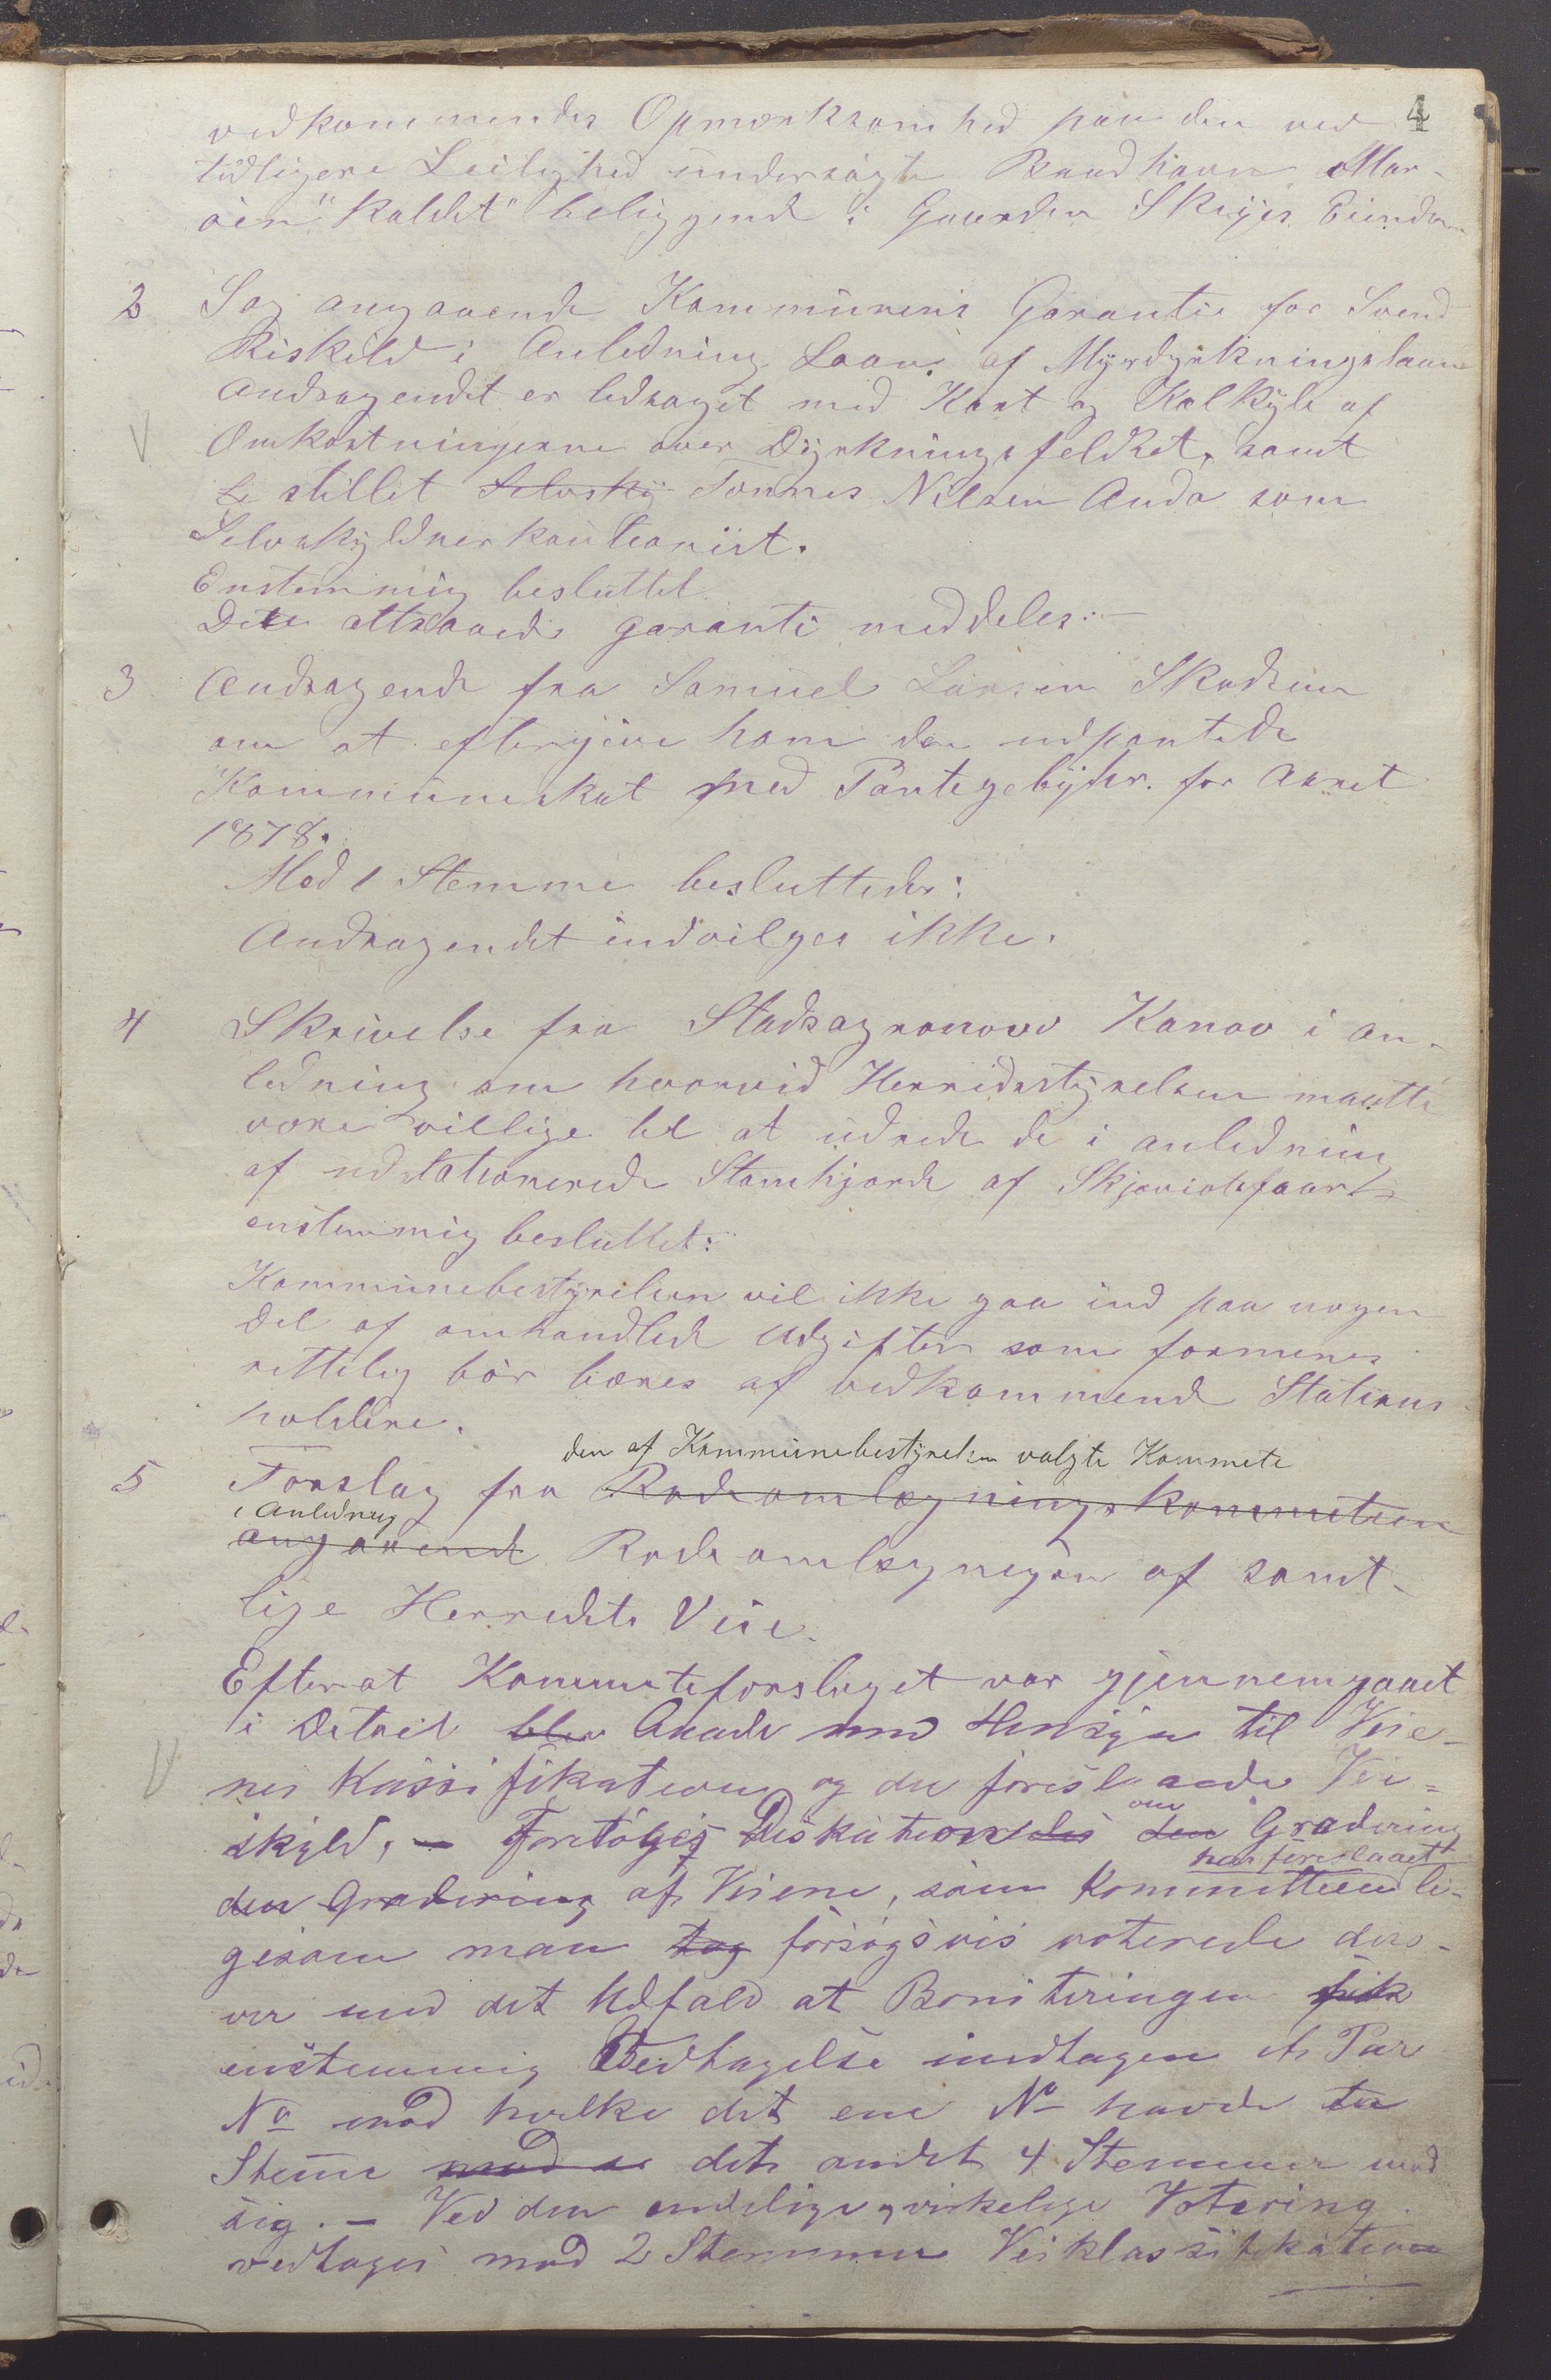 4
vedkommendes Opmærksomhed paa den ved
tidligere Leilighed undersøgte Baadhavn Mar-
øien "kaldet" beliggende i Gaarden Skeijes Eiendom
2 Sag angaaende Kommunens Garanti for Svend
Riskild i Anledning Laan af Myrdyrkningslaane
Andragendet er ledsaget med Kart og Kalkyle af
V
Omkostningerne over Dyrkningsfeldtet, samt
Le stillet Selvsky Tønnes Nilsen Anda som
Selvskyldnerkautionist.
Enstemmig besluttet.
Den attraaede garanti meddeles:
3 Andragende fra Samuel Larsen Skadsem
om at eftergive ham den udpantede
Kommuneskat med Pantegebyhr. for Aaret
1878.
Mod 1 Stemme besluttedes:
Andragendet indvilges ikke.
4 Skrivelse fra Stadsagronom Kanav i an-
ledning om hvorvid Herridsstyrelsen maatte
være villige til at udrede de i anledning
af udstationerede Stamhjorde af Skjeviotfaar
enstemmig besluttet:
Kommunebestyrelsen vil ikke gaa ind paa nogen
del af omhandlede Udgifter som formenes
rettelig bør bæres af vedkommende Stations-
holdere.
den af Kommunebestyrelsen valgte Kommete
5 Forslag fra Rodeomlægningskommiteen
i Anledning
angaaende Rodeomlægnigen af samt-
lige Herredets Veie.
Efter at Kommeteforslaget var gjennemgaaet
i Detail blev Anade med Hensyn til Veie-
V
nes Kassifikation og den foreslaaede Vei-
skyld, – Foretoges Diskution des den Gradering
om
har foreslaaet
den Gradering af Veiene, som Kommitteen li-
gesom man tog forsøgsvis voterede der-
ver med det Udfald at Boniteringen fik
enstemmig Vedtagelse undtagen et Par
No mod hvilke det ene No havde en
Stemme mod det andet 4 Stemmer mod
sig. – Ved den endelige virkelige Votering
vedtages mod 2 Stemmer Veiklassifikation